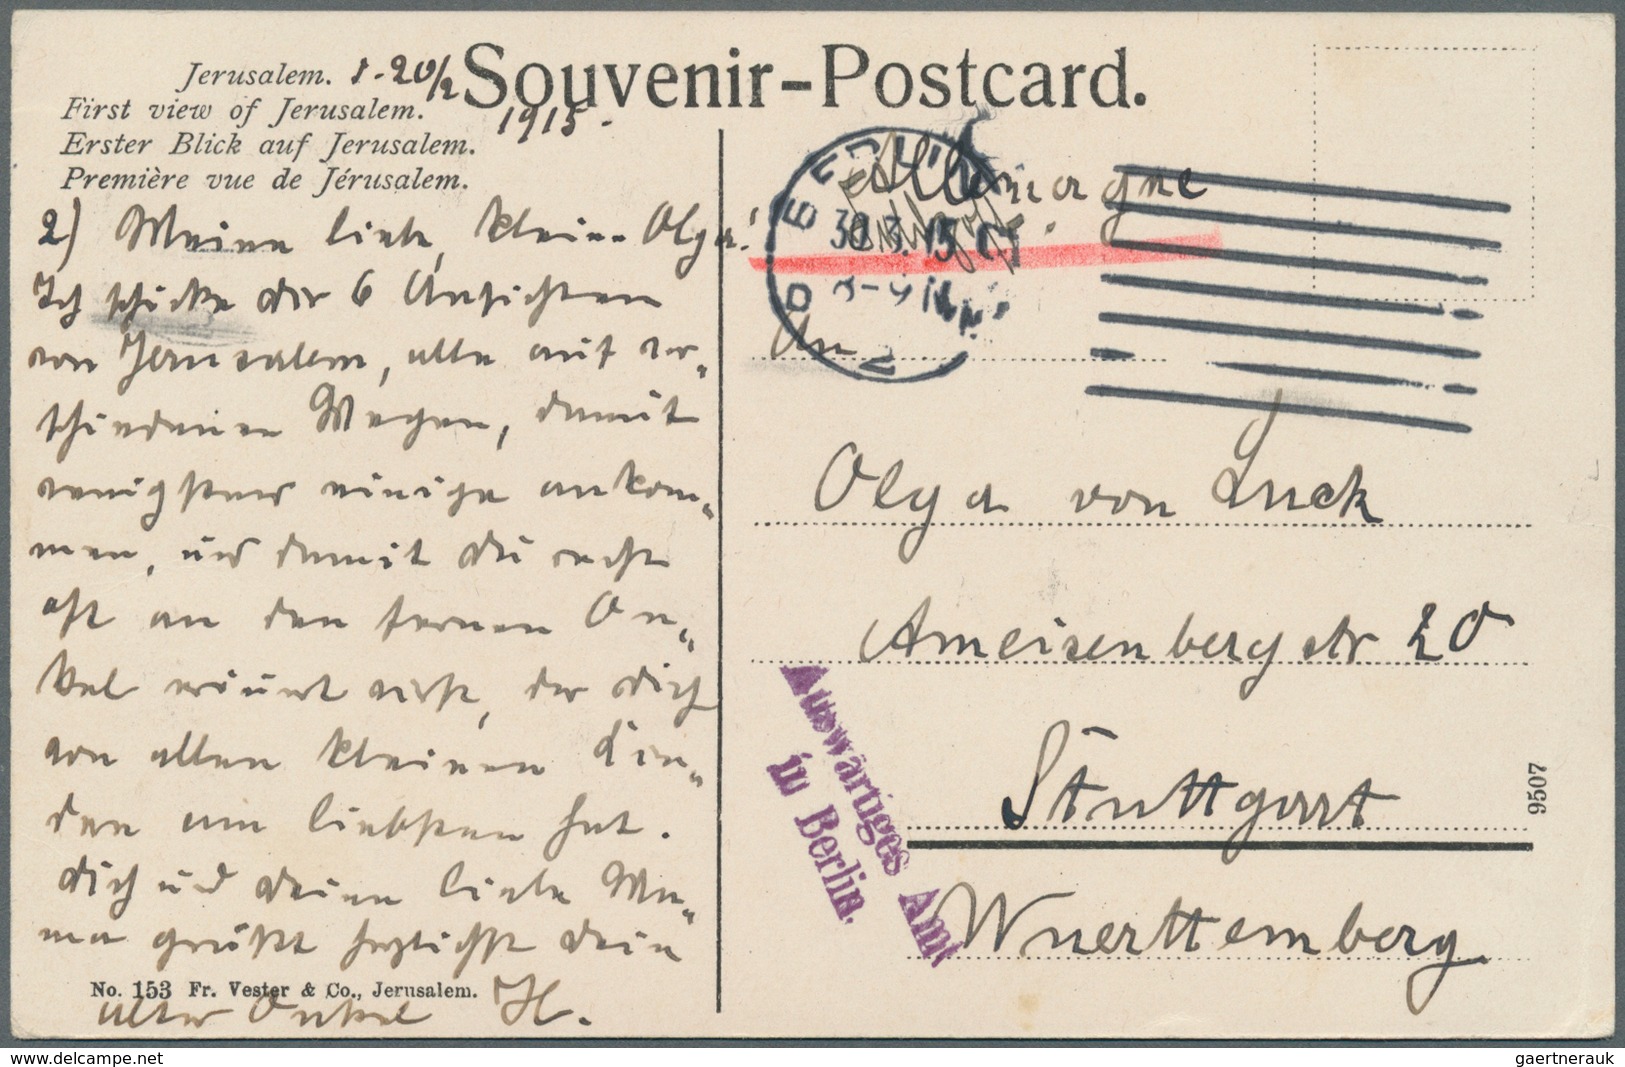 Souvenir-Postcard.
Jerusalem. 20/2
1915.
First view of Jerusalem.
Erster Blick auf Jerusalem.
Première vue de Jérusalem.
2) Meine liebe, kleine Olga!
Ich schicke dir 6 Ansichten
von Jerusalem, alle auf ver-
schiedenen Wegen, damit
wenigstens einige ankom-
men, und damit du recht
oft an den fernen On-
kel erinnert wirst, der dich
von allen kleinen Kin-
dern am liebsten hat.
Dich und deine liebe Ma-
ma grüßt herzlichst dein
alter Onkel H.
No. 153 Fr. Vester & Co., Jerusalem.
Allemagne
BERLIN
30.3.15
8-9 N
An
Olga von Luck
Ameisenbergstr 20
Stuttgart
Wuerttemberg
Auswärtiges Amt
in Berlin.
9507
www.delcampe.net
gaertnerauk